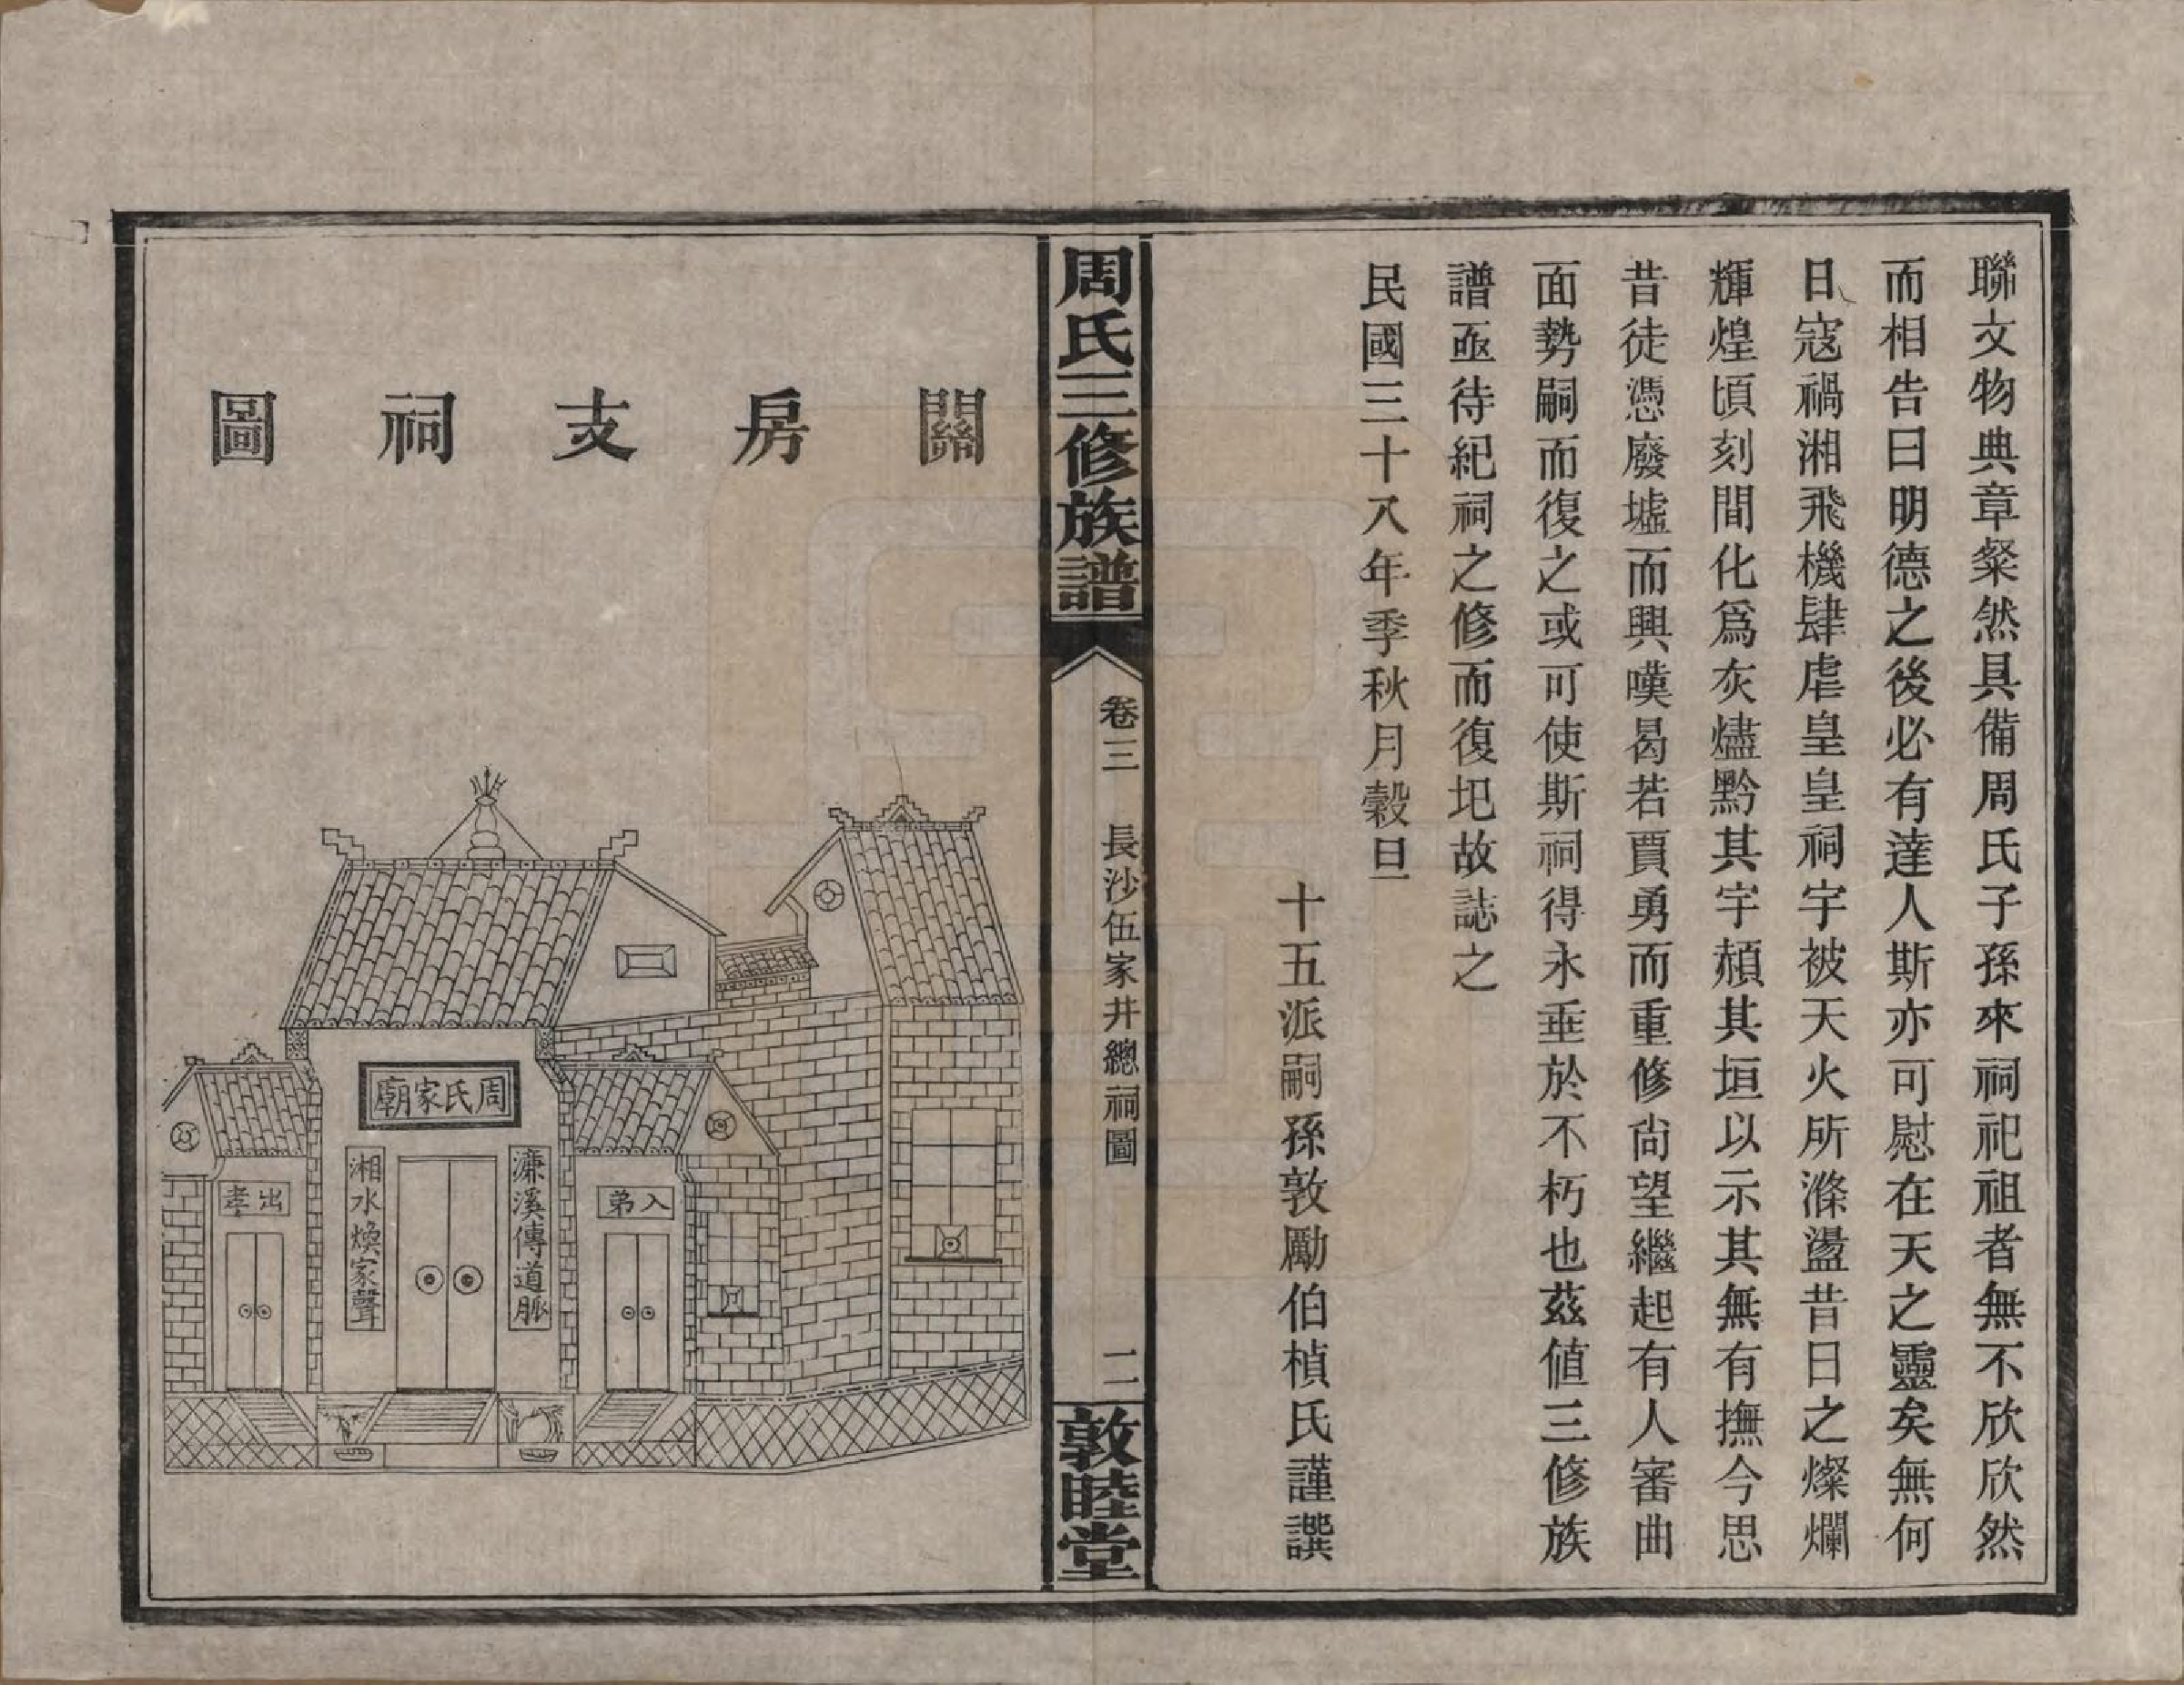 聯文物典章粲然具備周氏子孫來祠祀祖者無不欣欣然
而相告曰明德之後必有達人斯亦可慰在天之靈矣無何
日寇禍湘飛機肆虐皇皇祠宇被天火所滌盪昔日之燦爛
輝煌頃刻間化爲灰燼黔其宇頳其垣以示其無有撫今思
昔徒憑廢墟而興嘆曷若賈勇而重修尙望繼起有人審曲
面勢嗣而復之或可使斯祠得永垂於不朽也茲値三修族
譜亟待紀祠之修而復圯故誌之
民國三十八年季秋月穀旦
十五派嗣孫敦勵伯楨氏謹譔
周氏三修族譜
卷三
長沙伍家井總祠圖
二
敦睦堂
關房支祠圖
周氏家廟
濂溪傳道脈
湘水煥家聲
入弟
出孝